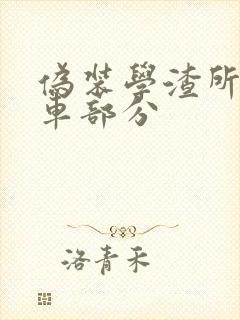 偽裝學渣所
車部分
洛青禾